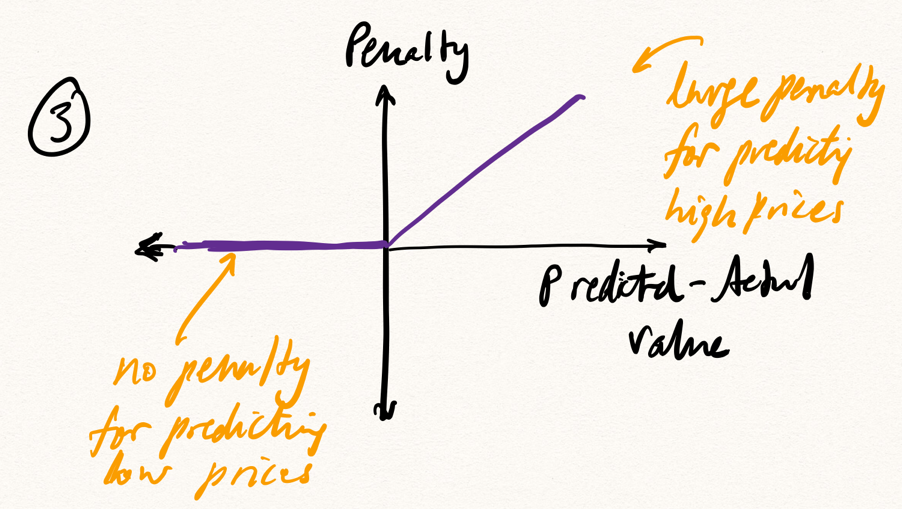 3
Penalty
large penalty
for predicting
high prices
Predicted - Actual
value
no penalty
for predicting
low prices